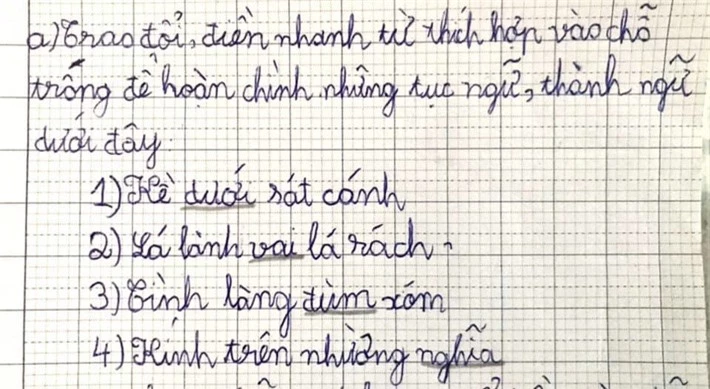 a) Trao đổi, điền nhanh từ thích hợp vào chỗ
trống để hoàn chỉnh những tục ngữ, thành ngữ
dưới đây:
1) Kề dưới sát cánh
2) Lá lành vai lá rách.
3) Tình làng đùm xóm
4) Kính trên nhường nghĩa